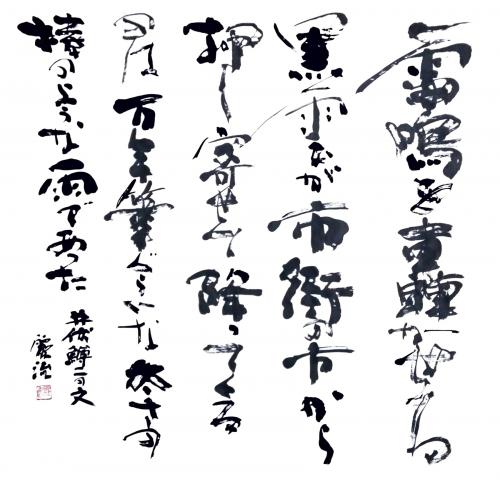 雷鳴を轟かせる
黒雲が市街の方から
押し寄せて降ってくる
のは万年筆ぐらいな太さの
棒のような雨であった
井伏鱒二の文
慶治